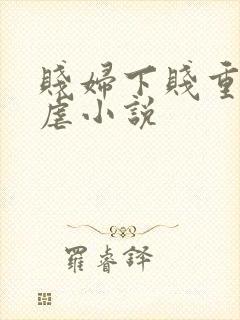 賤婦下賤重
虐小說
羅睿鐸